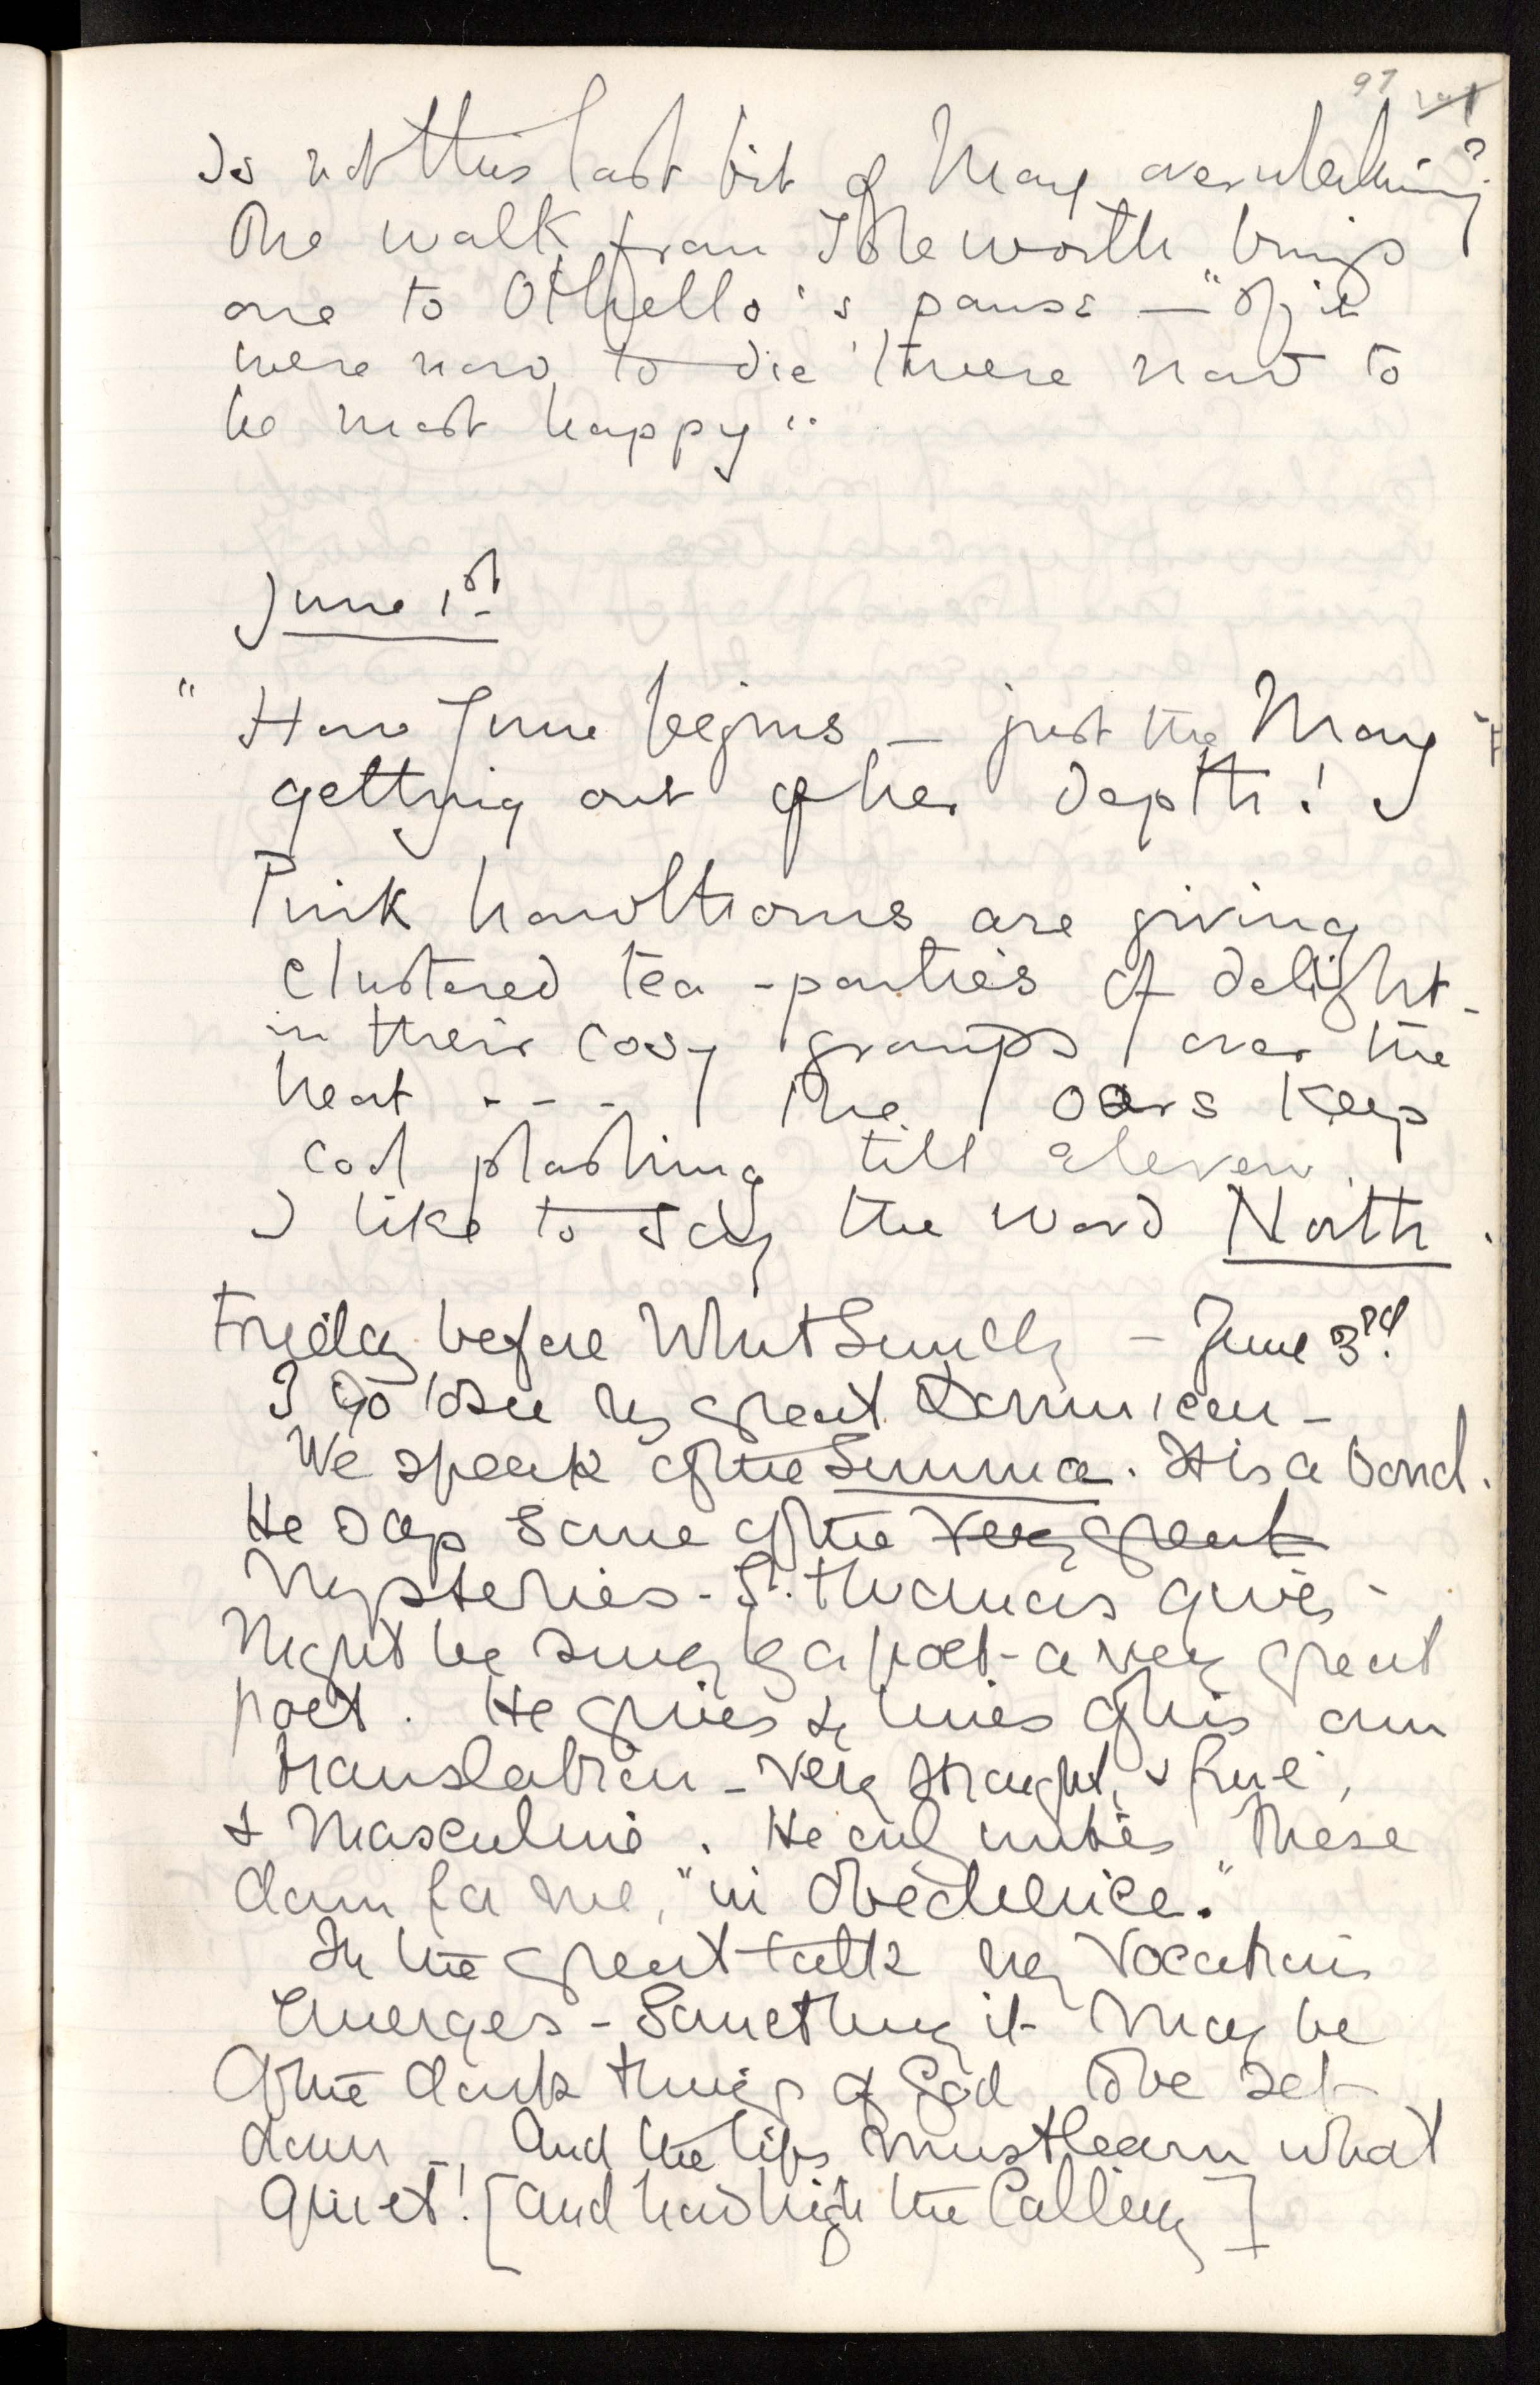 97
Is not this last bit of May overwhelming?
The walk from Isleworth brings
one to Othello's pause — "If it
were now to die 'twere now to
be most happy".
June 1st
" How June begins — just the May
getting out of her depth!
Pink hawthorns are giving
clustered tea-parties of delight
in their cosy groups over the
heat - - - The oars keep
cool plashing till eleven.
I like to say the word North.
Friday before WhitSunday — June 3rd.
I go to see my great Dominican —
We speak of the Summa. It is a bond.
He says some of the very great
Mysteries - St. Thomas gives -
Might be sung by a poet - a very great
poet. He gives me lines of his own
translation - very straight, & fine,
& Masculine. He only writes these
down for me, "in Obedience."
In the great talk my Vocation
Emerges - Something it may be
Of the dark things of God to be set
down - And the lips must learn what
Quiet! [And how high the Calling]